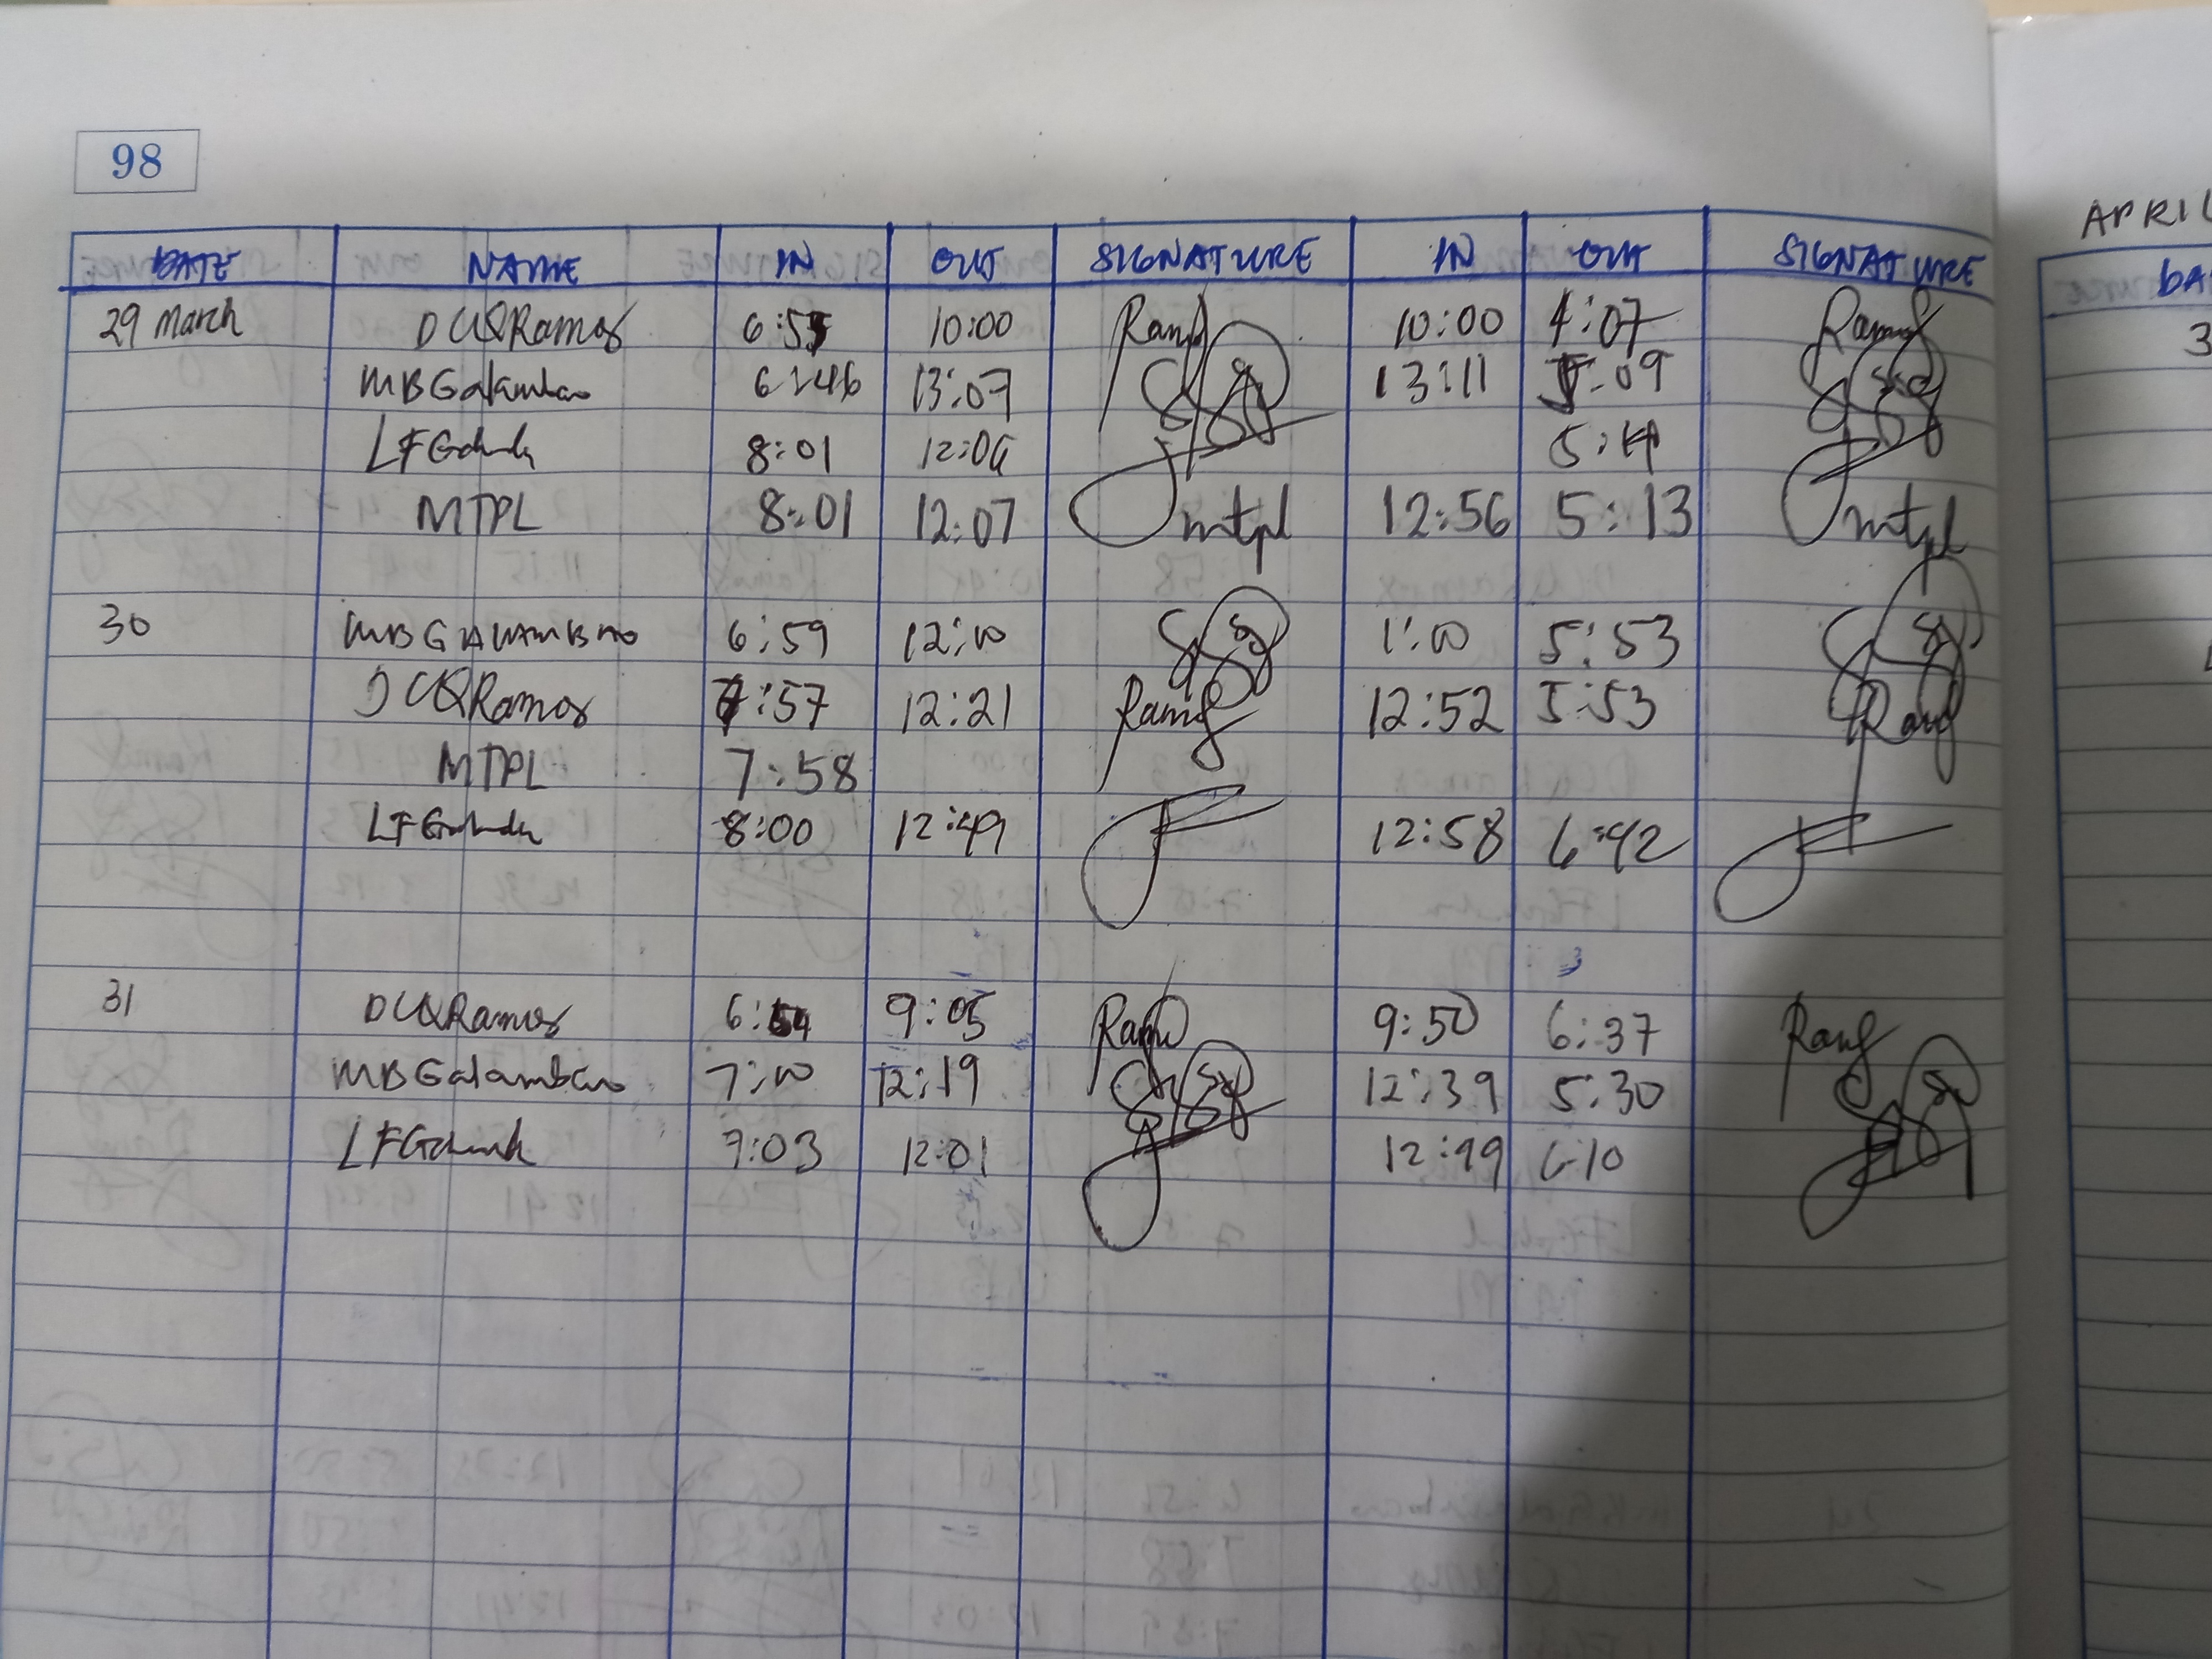 98
DATE NAME IN OUT SIGNATURE IN OUT SIGNATURE
29 March DCQRamos 6:55 10:00 10:00 4:07
MBGalambao 6:46 13:07 13:11 5:09
8:01 12:06
MTPL 8:01 12:07 mtpl 12:56 5:13 mtpl
30 MBGALAMBAO 6:59 12:00 1:00 5:53
DCQRamos 7:57 12:21 12:52 5:53
MTPL 7:58
8:00 12:49 12:58 6:42
31 DCQRamos 6:54 9:05 9:50 6:37
MBGalambao 7:00 12:19 12:39 5:30
7:03 12:01 12:49 6:10
APRIL